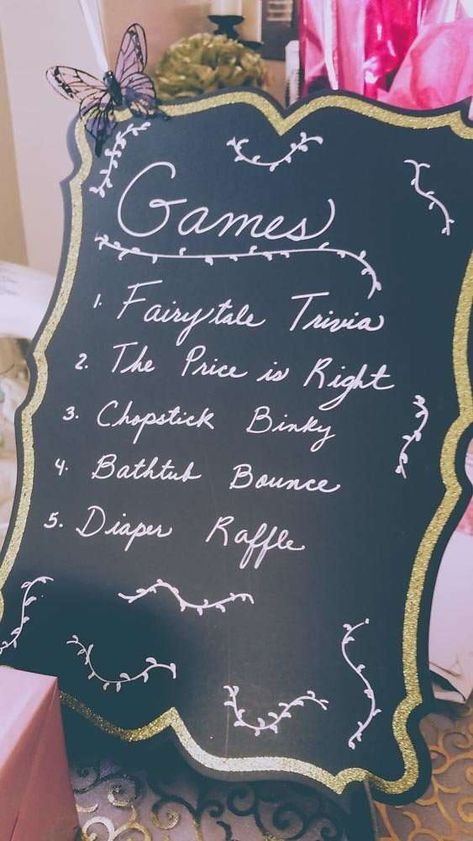 Games
1. Fairytale Trivia
2. The Price is Right
3. Chopstick Binky
4. Bathtub Bounce
5. Diaper Raffle